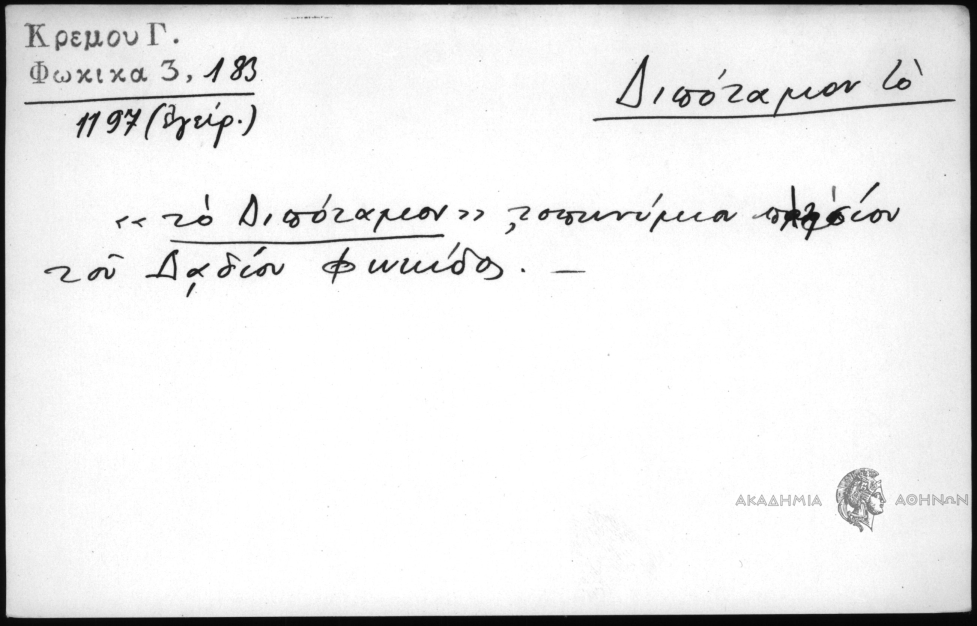 Κρεμου Γ.
Φωκικα 3, 183
1197 (ἐγείρ.)
Διπόταμον τὸ
«τὸ Διπόταμον», τοπωνύμιον πλησίον
τοῦ Δᾳδίου Φωκίδος. —
ΑΚΑΔΗΜΙΑ ΑΘΗΝΩΝ